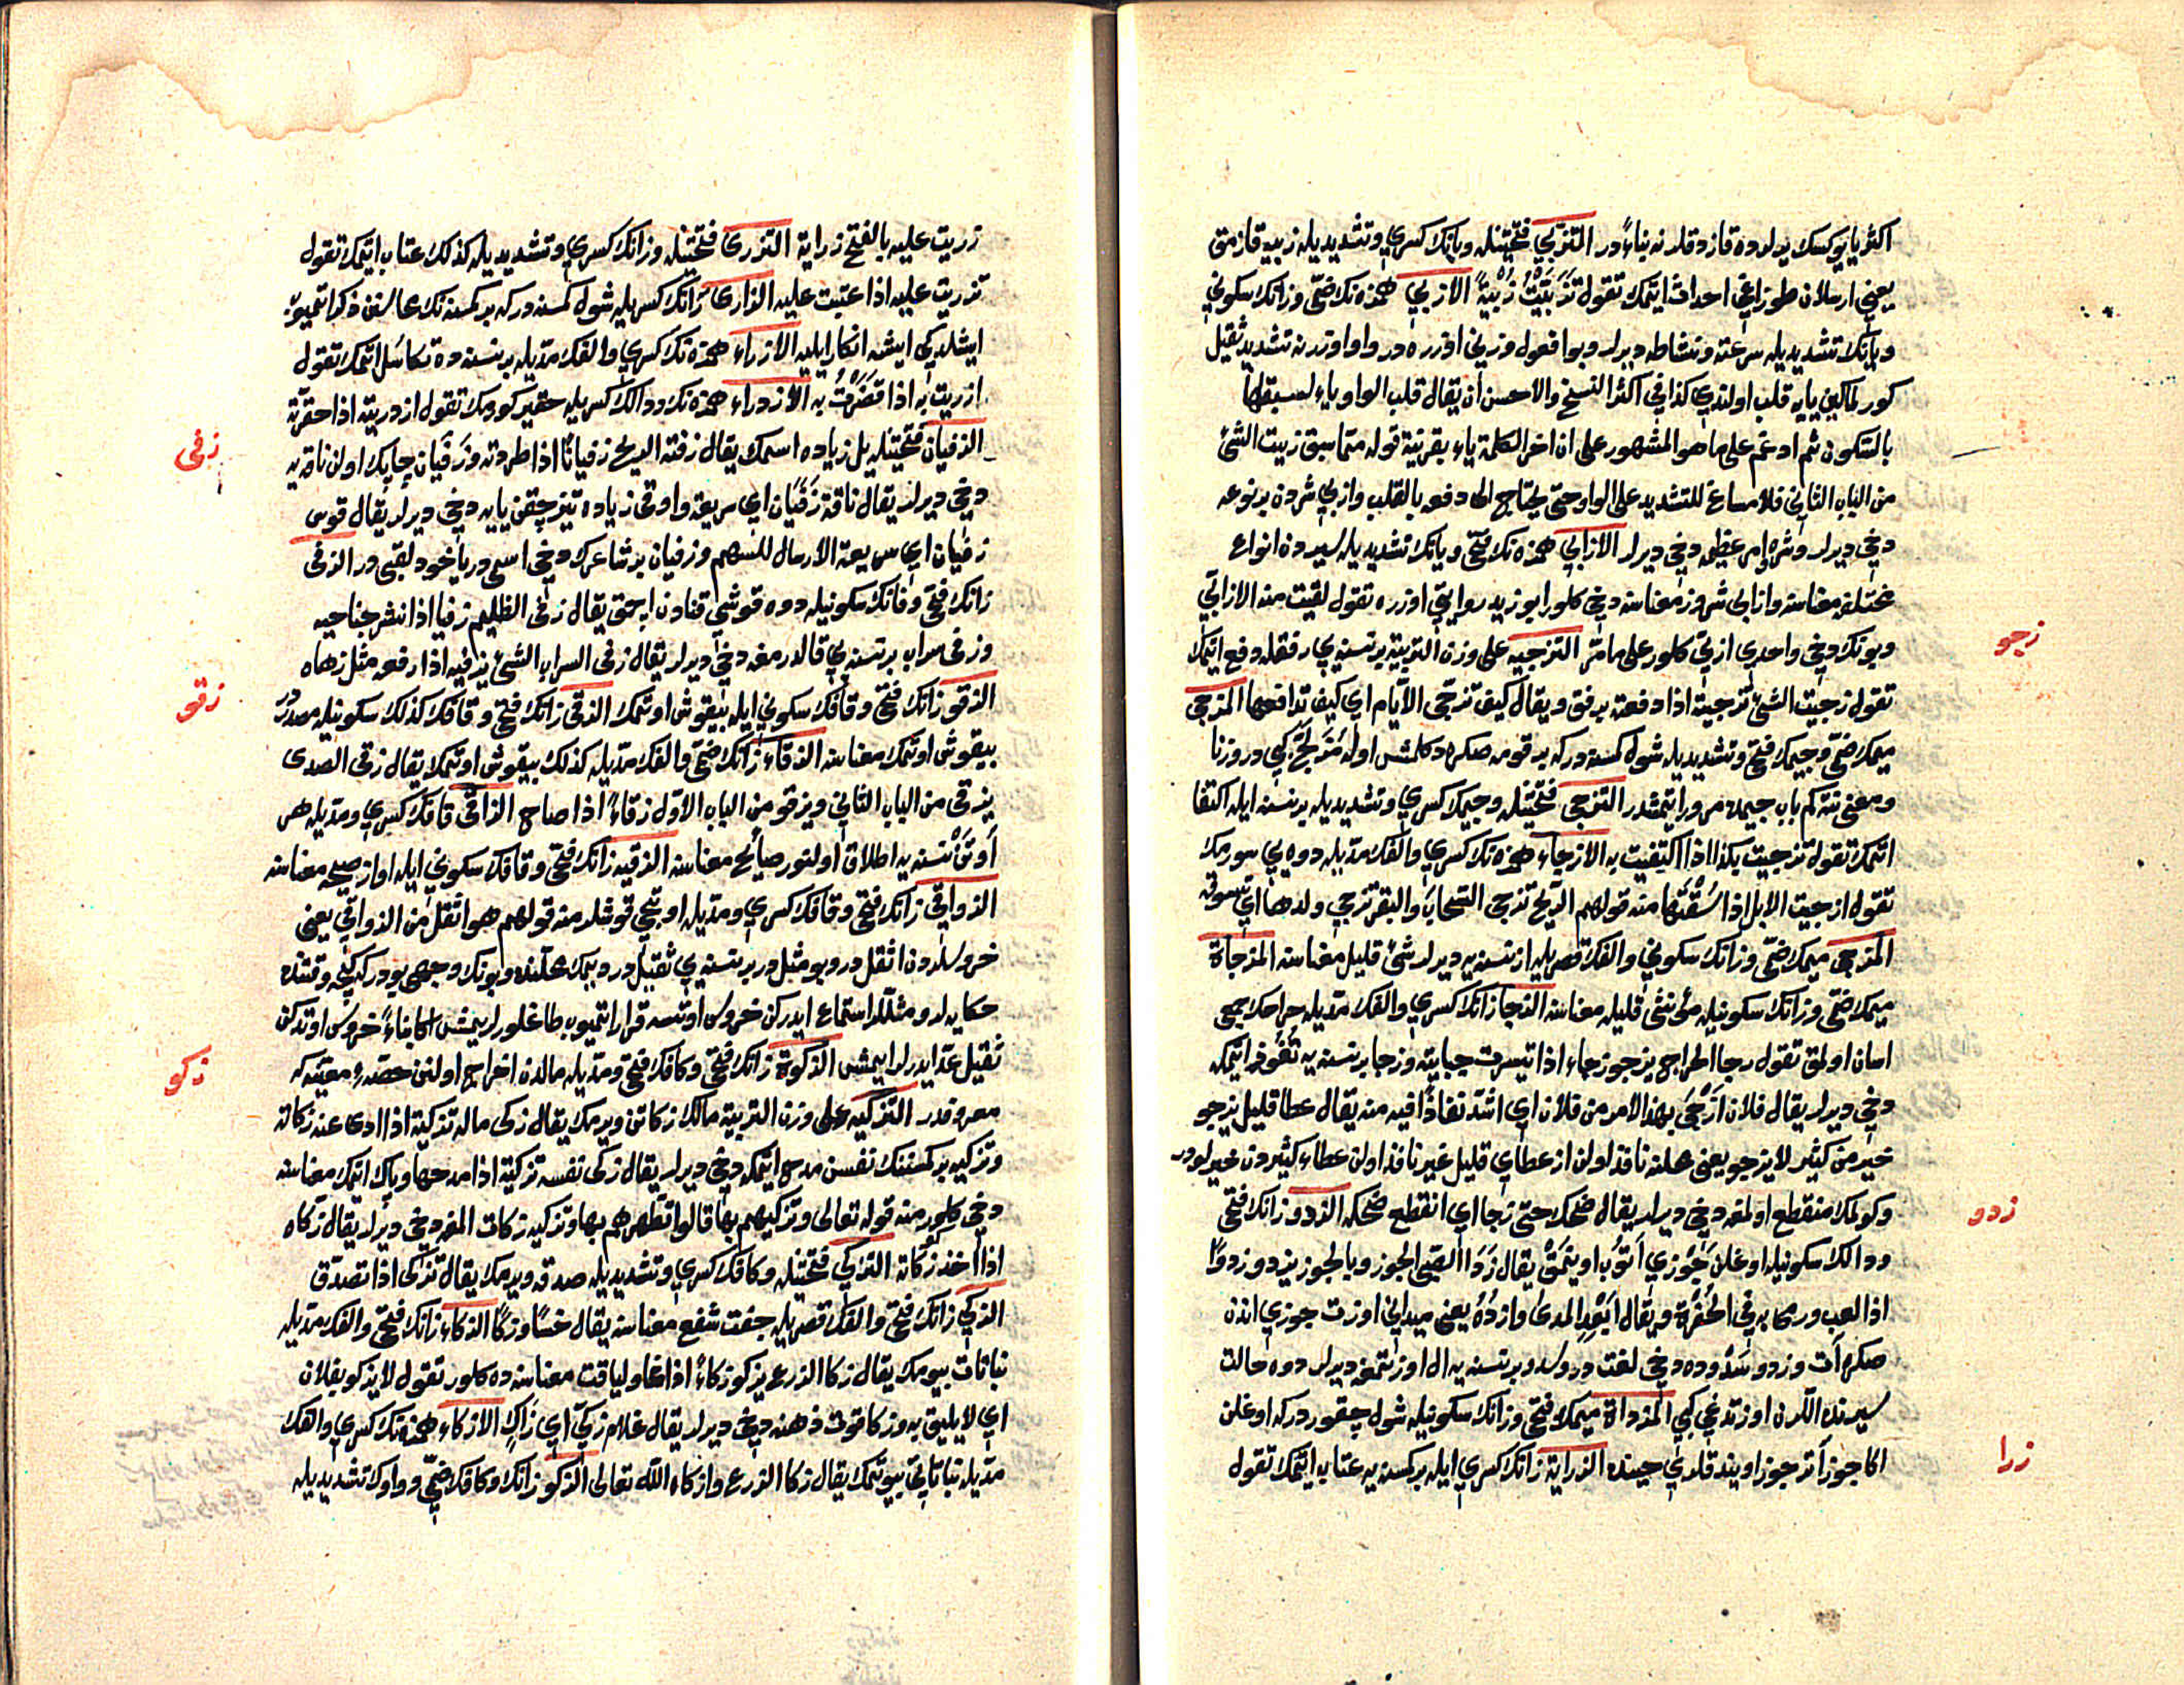 اكثر يا يوكسك يرلرده قازدقلرنه بناءً در التزبّي فتحتينله وبانك كسري وتشديديله زبيه قازمق
يعني ارسلان طوزاغي احداث ايتمك تقول تزبّيت زُبْيةً الازبيّ همزه نك ضمّي وزانك سكوني
ويانك تشديديله سرعته ونشاطه ديرلر وبو افعول وزني اوزره در واو اوزرنه تشديد ثقيل
كورلمكين يايه قلب اولندي كذا في اكثر النسخ والاحسن ان يقال قلب الواو ياء لسبقها
بالسكون ثم ادغم على ما هو المشهور على ان اخر الكلمة ياء بقرينة قوله مما سبق زبيت الشئ
من الباب الثاني فلا مساغ للتشديد على الواو حتى يحتاج الى دفعه بالقلب وازبي شردن بر نوعه
دخي ديرلر وشر وامر عظيمه دخي ديرلر الازابي همزه نك فتحي ويانك تشديديله سيردن انواع
مختلفه معناسنه وازابي شرور معناسنه دخي كلور ابو زيد روايتي اوزره تقول لقيت منه الازابيّ
وبونك دخي واحدي ازبيّ كلور على ما مرّ التزجيه على وزن التربية برنسنه يي رفقله دفع ايتمك
تقول زجيت الشئ تزجية اذا دفعته برفق ويقال كيف تزجّي الايام اي كيف تدافعها المزجي
ميمك ضمّي وجيمك فتحي وتشديديله شول كمسه دركه بر قومه صكره دكلمش اوله مزلج كبي در وزنا
ومعنى نته كم باب جيمده مرور ايتمشدر التزجي فتحتينله وجيمك كسري وتشديديله برنسنه ايله اكتفا
ايتمك تقول تزجيت بكذا اذا اكتفيت به الازجاء همزه نك كسري والفك مدّيله دوه يي سورمك
تقول ازجيت الابل اذا سُقْتَها منه قولهم الريح تزجي السحاب والبقر تزجي ولدها اي تسوقه
المزجى ميمك ضمّي وزانك سكوني والفك قصريله از نسنه يه ديرلر شئ قليل معناسنه المزجاة
ميمك ضمّي وزانك سكونيله مؤنثي قليله معناسنه الزجا زانك كسري والفك مدّيله خراجك جمعي
اسان اولمق تقول زجا الخراج يزجو زجاء اذا تيسرت جبايته وزجا برنسنه يه نفوذ ايتمكه
دخي ديرلر يقال فلان ازجى بهذا الامر من فلان اي اشد نفاذًا فيه منه يقال عطا قليل يزجو
خير من كثير لا يزجو يعني محلنه نافذ اولن از عطا اي قليل غير نافذ اولن عطاء كثيردن خيرلودر
وكولمك منقطع اولمغه دخي ديرلر يقال ضحك حتى زجا اي انقطع ضحكه الزدو زانك فتحي
ودالك سكونيله اوغلن جَوْزي اَتُوب اوينمق يقال زَدَا الصبي الجوز وبالجوز يزدو زدوًا
اذا لعب ورمى به في الحفرة ويقال اَبْعِدِ المدى وازدُهُ يعني ميداني اوزت جوزي اندن
صكره آت وزدو سدو ده دخي لغت در وسدو برنسنه يه ال اوزتمغه ديرلر دوه حالت
سيرنده اللرن اوزتدغي كبي المزداة ميمك فتحي وزانك سكونيله شول چقوردركه اوغلن
اكا جوز آتر جوز اويندقلري حينده الزراية زانك كسري ايله بر كمسنه يه عتاب ايتمك تقول
زجو
زدو
زرا
زريت عليه بالفتح زراية التزرّي فتحتينله وزانك كسري وتشديديله كذلك عتاب ايتمك تقول
تزريت عليه اذا عتبت عليه الزاري زانك كسريله شول كمسه دركه بر كمسنه نك محاسنن ذكر ايتميوب
ايشلدكي ايشنه انكار ايليه الازراء همزه نك كسري والفك مدّيله برنسنه ده تكاسل ايتمك تقول
ازريت به اذا قصّرت به الازدراء همزه نك ودالك كسريله حقير كورمك تقول ازدريته اذا حقّرته
الزفيان فتحتينله يل زياده اسمك يقال زفته الريح زفيانًا اذا طردته وزَفَيان چاپك اولن ناقه يه
دخي ديرلر يقال ناقة زَفَيَان اي سريعة واوقي زياده تيز چقن يايه دخي ديرلر يقال قوس
زفيان اي سريعة الارسال للسهم وزفيان بر شاعرك دخي اسمي در ياخود لقبي در الزفى
زانك فتحي وفانك سكونيله دوه قوشي قنادن اچمق يقال زفى الظليم زفيا اذا نشر جناحيه
وزفى سراب برنسنه يي قالدرمغه دخي ديرلر يقال زفى السراب الشئ يزفيه اذا رفعه مثل زهاه
الزقو زانك فتحي وقافك سكوني ايله بيقوش اوتمك الزقي زانك فتحي وقافك كذلك سكونيله مصدر
بيقوش اوتمك معناسنه الزقاء زانك ضمي والفك مدّيله كذلك بيقوش اوتمك يقال زقى الصدى
يزقي من الباب الثاني ويزقو من الباب الاول زقاءً اذا صاح الزاقي قافك كسري ومدّيله هر
اَوتَنْ نسنه يه اطلاق اولنور صايح معناسنه الزقيه زانك فتحي وقافك سكوني ايله اواز صيحه معناسنه
الزواقي زانك فتحي وقافك كسري ومدّيله اوتيجي قوشلر منه قولهم هو اثقل من الزواقي يعني
خروسلردن اثقل در وبو مثل در برنسنه يي ثقيل در ديمك محلنده وبونك وجهي بودركه كيجه وقتنده
حكايه لر و مثللر استماع ايدركن خروس اوتسه قرار ايتميوب طاغلورلر ايمش اكا بناءً خروس اوتدكن
ثقيل عدّ ايدرلر ايمش الزكوة زانك فتحي وكافك فتحي ومدّيله مالدن اخراج اولنن حصّهء معيّنه كه
معروفدر التزكيه على وزن التربية مالك زكاتن ويرمك يقال زكى ماله تزكية اذا ادى عنه زكاته
وتزكيه بر كمسنك نفسن مدح ايتمكه دخي ديرلر يقال زكى نفسه تزكية اذا مدحها وپاك ايتمك معناسنه
دخي كلور منه قوله تعالى وتزكيهم بها قالوا تطهرهم بها وتزكيه زكات المغه دخي ديرلر يقال زكّاه
اذا اخذ زكاته التزكي فتحتينله وكافك كسري وتشديديله صدقه ويرمك يقال تزكى اذا تصدّق
الزكي زانك فتحي والفك قصريله جفت شفع معناسنه يقال خسًا وزكًا الزكاء زانك فتحي والفك مدّيله
نباتات بيومك يقال زكا الزرع يزكو زكاءً اذا نما ولياقت معناسنه ده كلور تقول لا يزكو بفلان
اي لا يليق به وزكا قوت ذهنه دخي ديرلر يقال غلام زكيّ اي زاكٍ الازكاء همزه نك كسري والفك
مدّيله نباتاتي بيوتمك يقال زكا الزرع وازكاه الله تعالى الزكو زانك وكافك ضمّي وواوك تشديديله
زفى
زقو
زكو